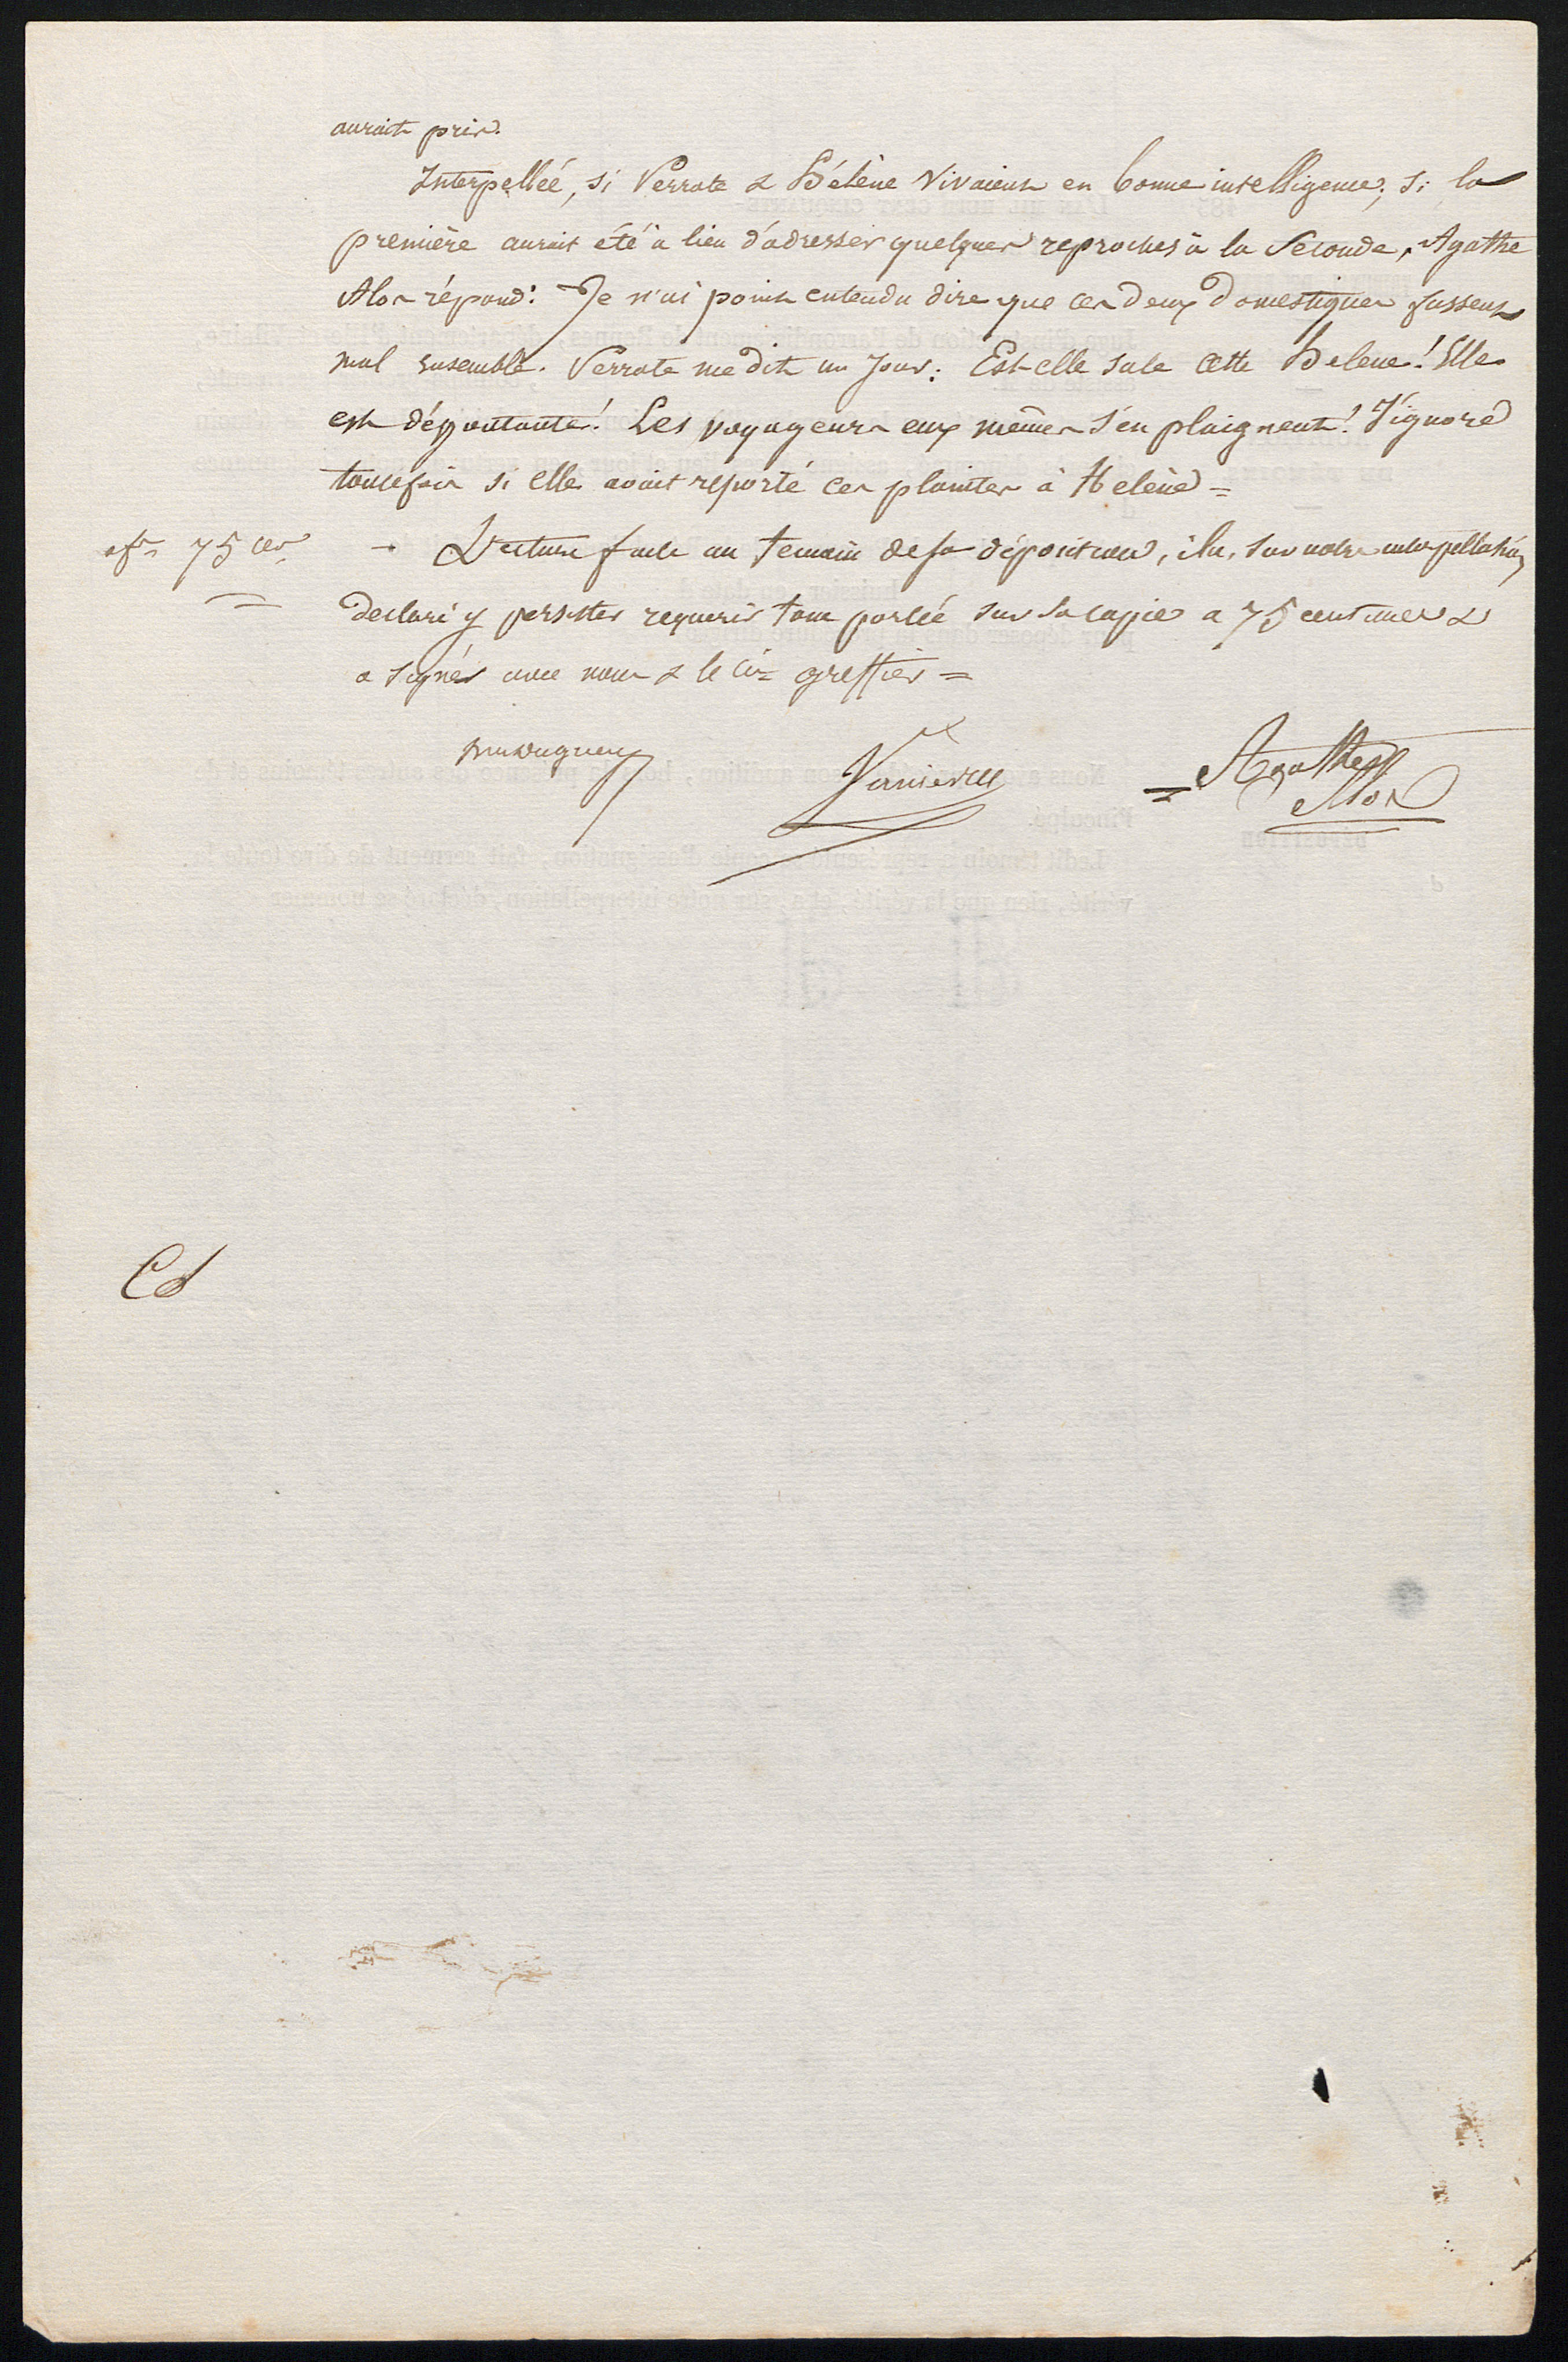 aurait pris.
Interpellée, si Perrote & Hélène vivaient en bonne intelligence; si la
première aurait été à lieu d'adresser quelques reproches à la seconde, Agathe
Alos répond: Je n'ai point entendu dire que ces deux domestiques fussent
mal ensemble. Perrote me dit un jour: Est-elle sale cette Helene! Elle
est dégoutante! Les voyageurs eux mêmes s'en plaignent! J'ignore
toutefois si elle avait reporté ces plaintes à Helène =
75 ces
Lecture faite au temoin de sa déposition, il a, sur notre interpellation
declaré y persister requeris taxe portée sur sa copie a 75 centimes &
a signés avec nous & le Cis greffier =
Vannier
Agathe
Alos
Cd